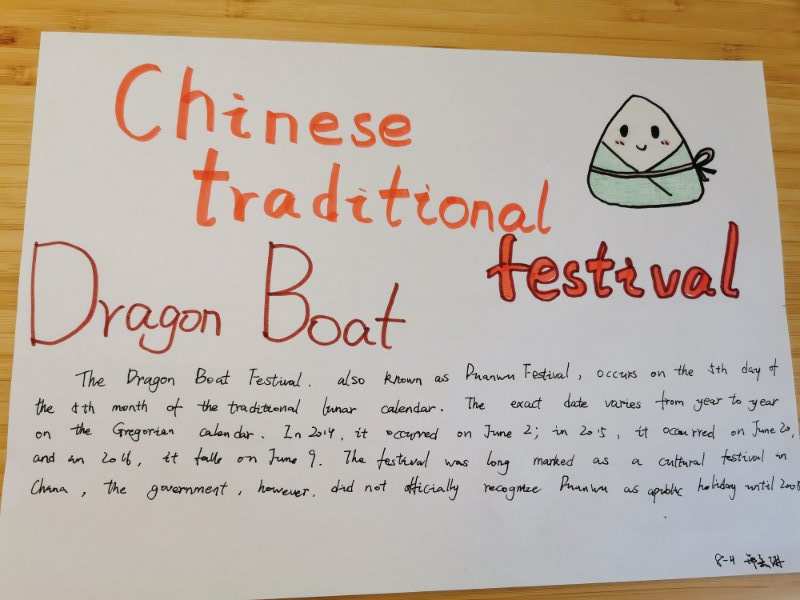 Chinese
traditional
festival
Dragon Boat
The Dragon Boat Festival. also known as Duanwu Festival, occurs on the 5th day of
the 5th month of the traditional lunar calendar. The exact date varies from year to year
on the Gregorian calendar. In 2014, it occurred on June 2; in 2015, it occurred on June 20,
and in 2016, it falls on June 9. The festival was long marked as a cultural festival in
China, the government, however. did not officially recognize Duanwu as a public holiday until 2008
8-4